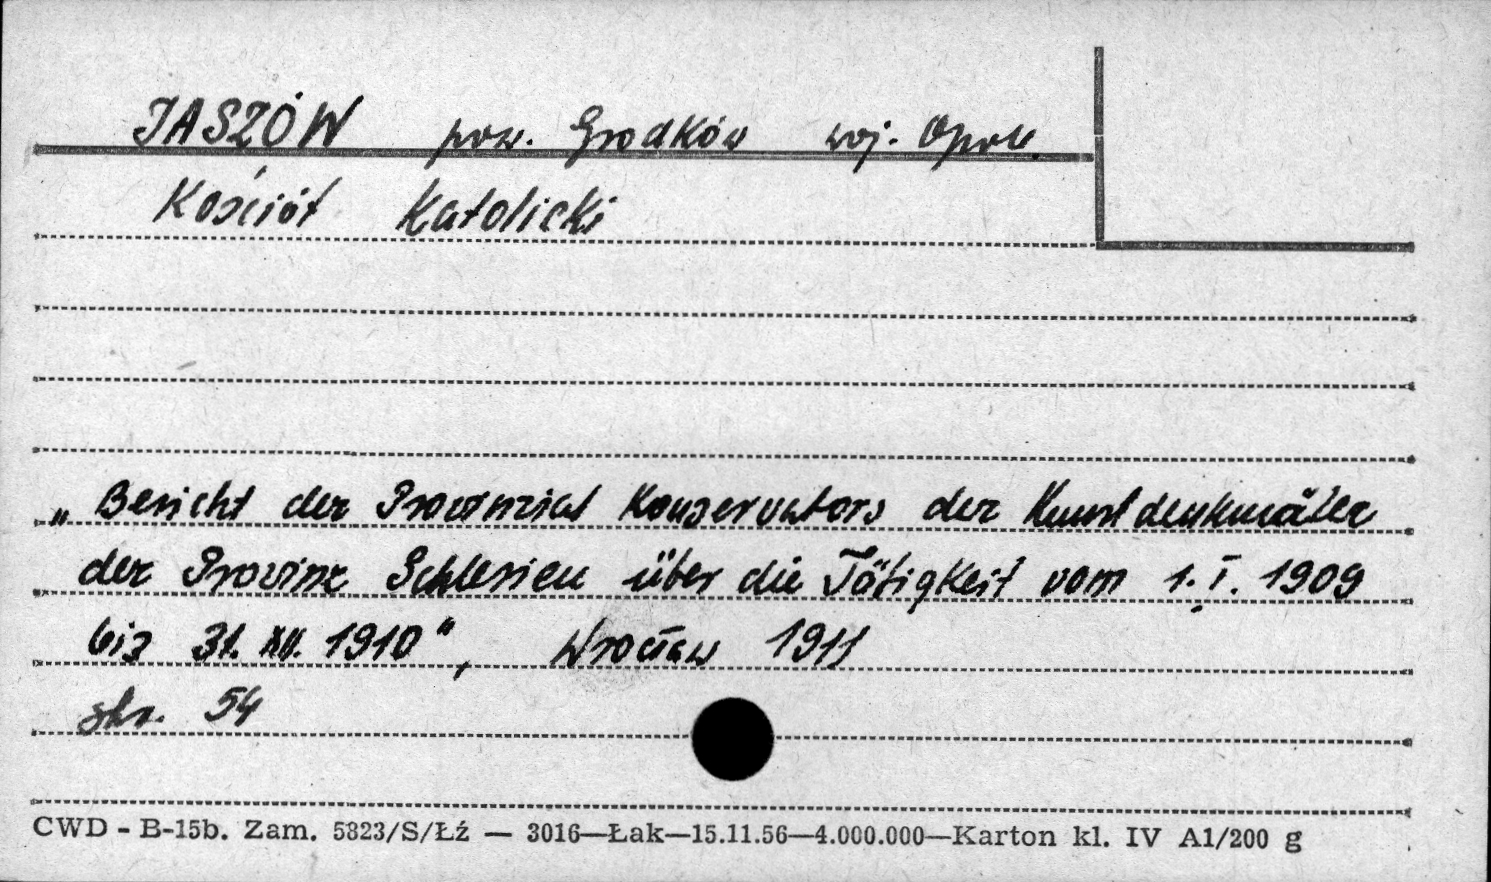 JASZÓW pow. Grodków woj. Opole
Kościół Katolicki
„Bericht der Provinzial Konservators der Kunstdenkmäler
der Provinz Schlesien über die Tätigkeit vom 1.I.1909
bis 31.XII.1910", Wrocław 1911
str. 54
CWD - B-15b. Zam. 5823/S/Łź — 3016—Łak—15.11.56—4.000.000—Karton kl. IV A1/200 g